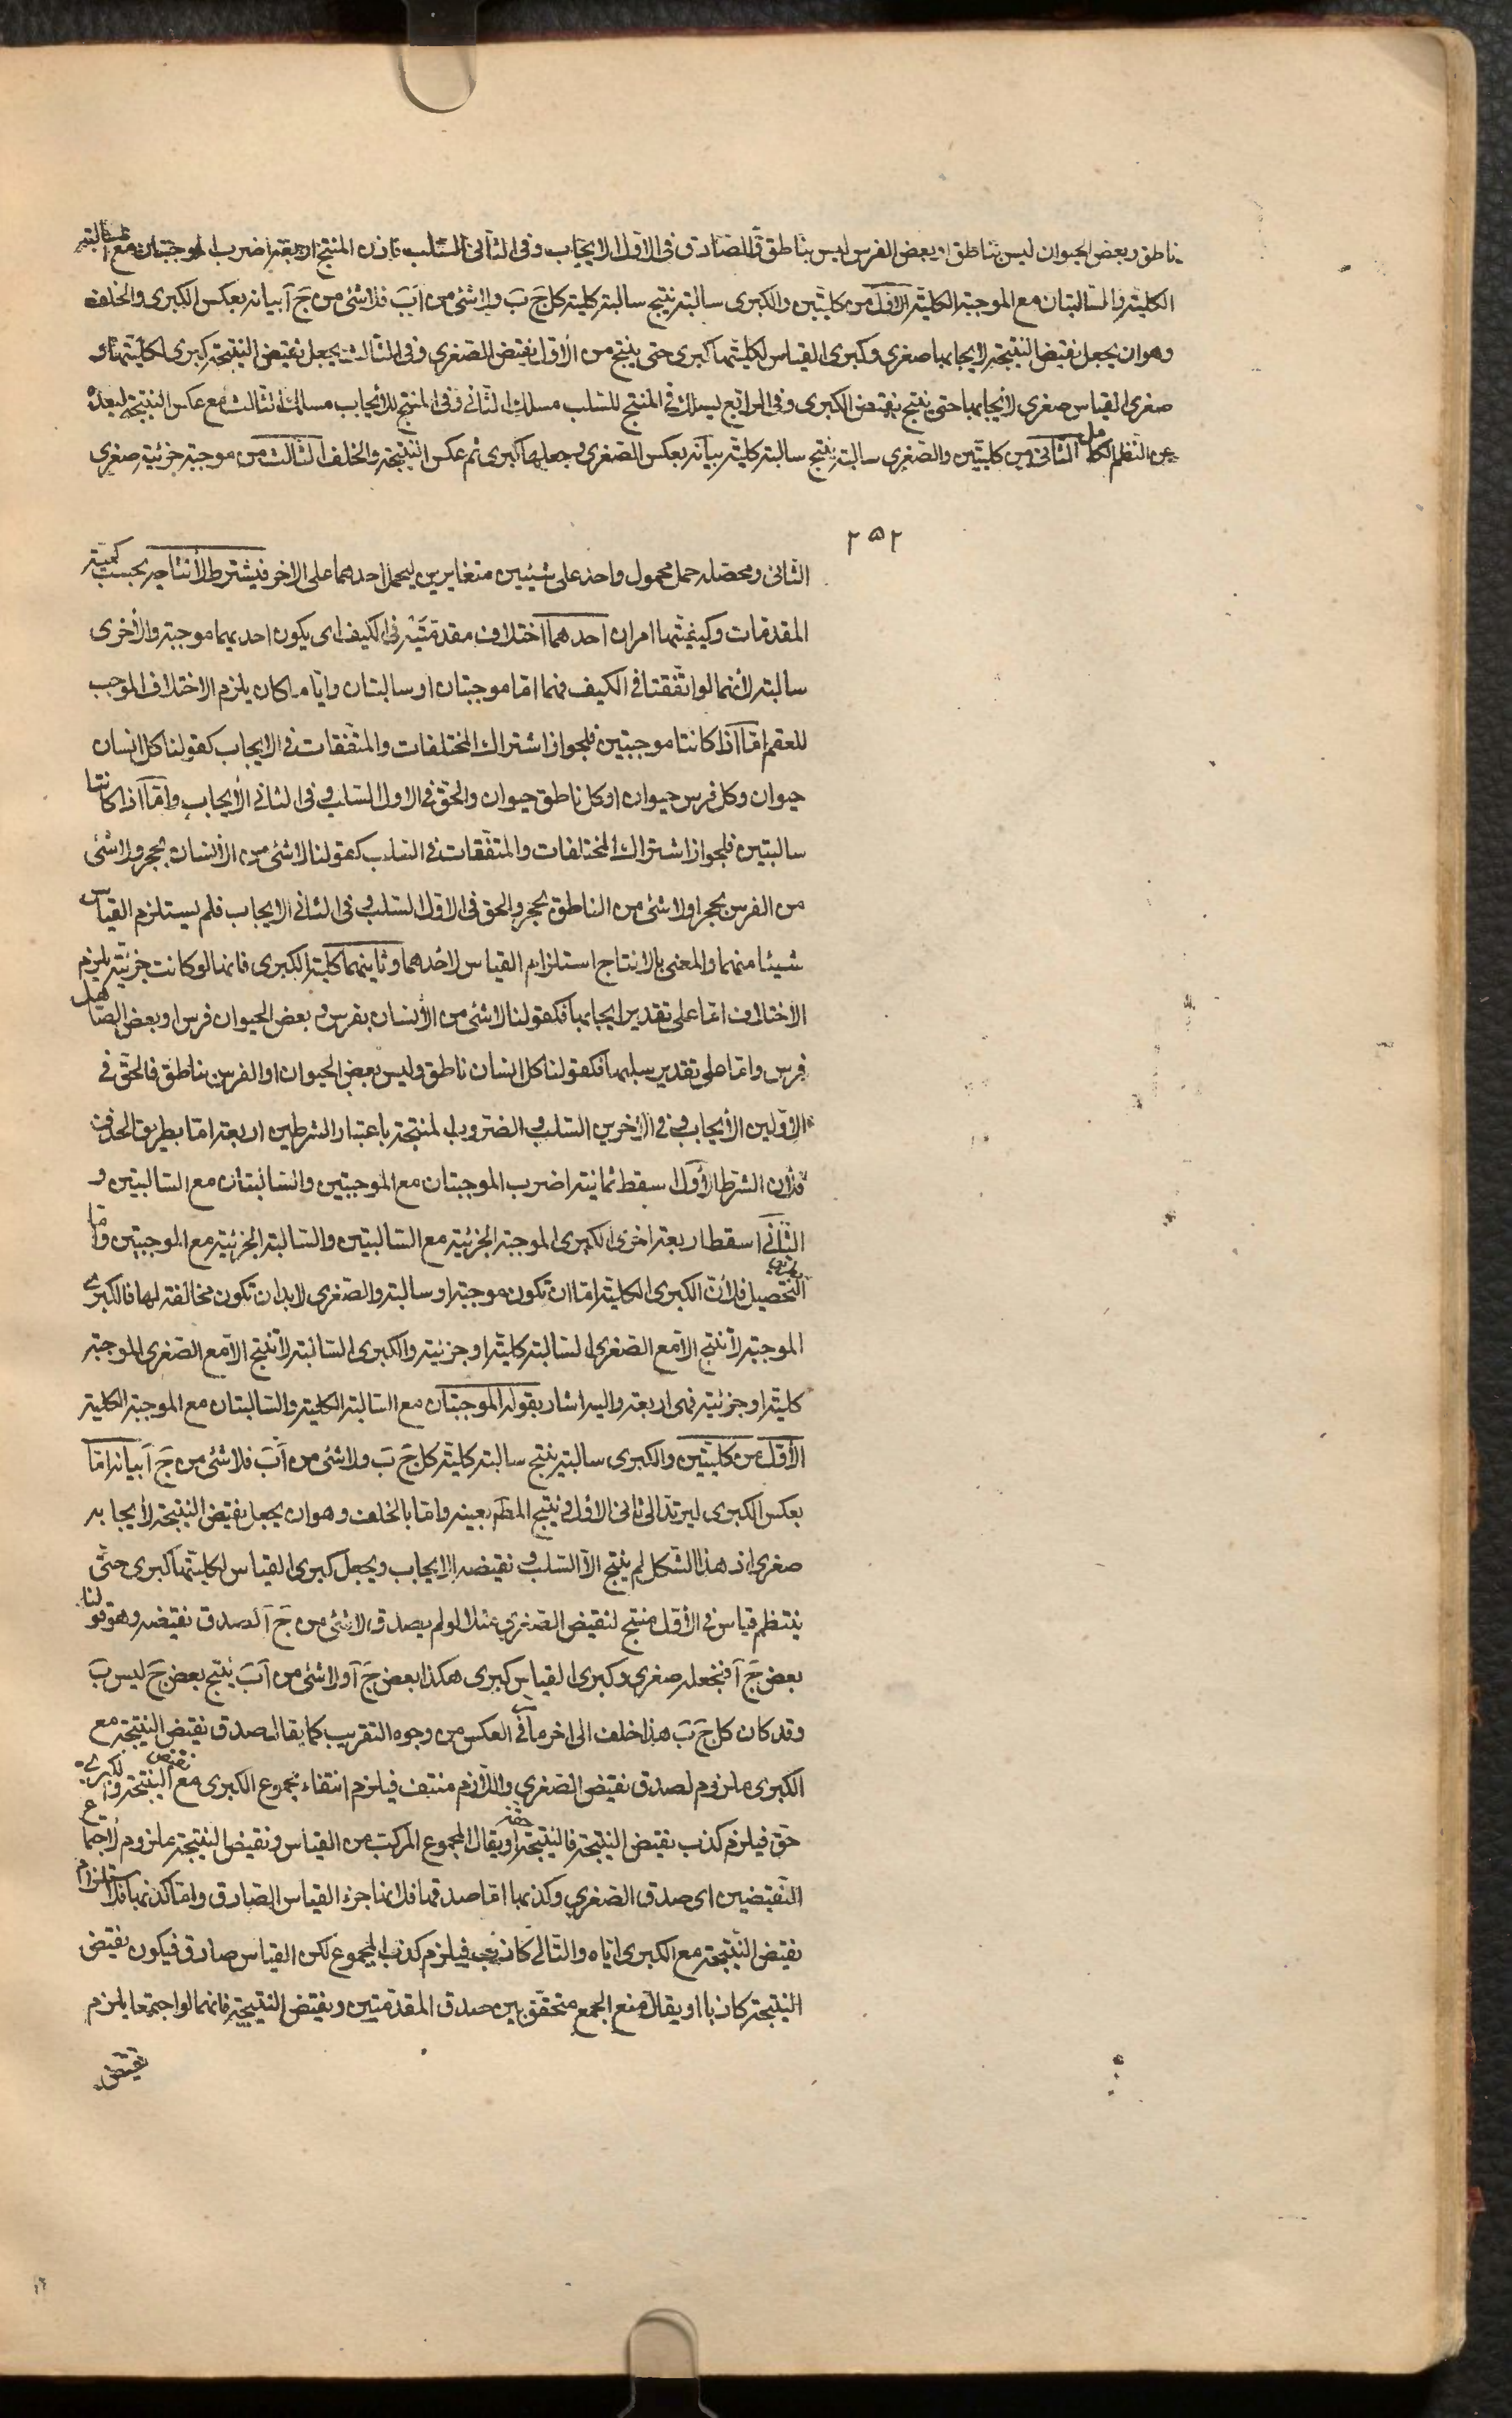 ناطق وبعض الحيوان ليس بناطق او بعض الفرس ليس بناطق والصادق فى الاول الايجاب وفى الثانى السلب فاذن المنتج اربعة اضرب الموجبتان مع السالبة
الكلية والسالبتان مع الموجبة الكلية الاول من كليتين والكبرى سالبة ينتج سالبة كلية كل جَ بَ ولا شئ من اَبَ فلا شئ من جَ اَ بيانه بعكس الكبرى والخلف
وهو ان يجعل نقيض النتيجة لايجابها صغرى وكبرى القياس لكليتها كبرى حتى ينتج من الاول نقيض الصغرى وفى الثالث يجعل نقيض النتيجة كبرى لكليتها و
صغرى القياس صغرى لايجابها حتى ينتج نقيض الكبرى وفى الرابع يسلك فى المنتج للسلب مسلك الثانى وفى المنتج للايجاب مسلك الثالث مع عكس النتيجة لبعده
عن النظم الكامل الثانى من كليتين والصغرى سالبة ينتج سالبة كلية بيانه بعكس الصغرى وجعلها كبرى ثم عكس النتيجة والخلف الثالث من موجبة جزئية صغرى
٢٥٢
الثانى ومحصله حمل محمول واحد على شيئين متغايرين ليحمل احدهما على الاخر فيشترط لانتاجه بحسب كمية
المقدمات وكيفيتها امران احدهما اختلاف مقدمتيه فى الكيف اى يكون احديهما موجبة والاخرى
سالبة لأنهما لو اتفقتا فى الكيف فهما اما موجبتان او سالبتان واياما كان يلزم الاختلاف الموجب
للعقم اما اذا كانتا موجبتين فلجواز اشتراك المختلفات والمتفقات فى الايجاب كقولنا كل انسان
حيوان وكل فرس حيوان او كل ناطق حيوان والحق فى الاول السلب وفى الثانى الايجاب واما اذا كانتا
سالبتين فلجواز اشتراك المختلفات والمتفقات فى السلب كقولنا لا شئ من الانسان بحجر ولا شئ
من الفرس بحجر او لا شئ من الناطق بحجر والحق فى الاول السلب وفى الثانى الايجاب فلم يستلزم القياس
شيئا منهما والمعنى بالانتاج استلزام القياس لاحدهما وثانيهما كلية الكبرى فانها لو كانت جزئية يلزم
الاختلاف اما على تقدير ايجابها فكقولنا لا شئ من الانسان بفرس وبعض الحيوان فرس او بعض الصاهل
فرس واما على تقدير سلبها فكقولنا كل انسان ناطق وليس بعض الحيوان او الفرس بناطق فالحق فى
الاولين الايجاب وفى الاخرين السلب والضروب المنتجة باعتبار الشرطين اربعة اما بطريق الحذف
فلأن الشرط الاول اسقط ثمانية اضرب الموجبتان مع الموجبتين والسالبتان مع السالبتين و
الثانى اسقط اربعة اخرى الكبرى الموجبة الجزئية مع السالبتين والسالبة الجزئية مع الموجبتين واما
التحصيل فلأن الكبرى الكلية اما ان تكون موجبة او سالبة والصغرى لابد ان تكون مخالفة لها فالكبرى
الموجبة لا تنتج الا مع الصغرى السالبة كلية او جزئية والكبرى السالبة لا تنتج الا مع الصغرى الموجبة
كلية او جزئية فهى اربعة واليه اشار بقوله الموجبتان مع السالبة الكلية والسالبتان مع الموجبة الكلية
الاول من كليتين والكبرى سالبة ينتج سالبة كلية كل جَ بَ ولا شئ من اَبَ فلا شئ من جَ اَ بيانه اما
بعكس الكبرى ليرتد الى ثانى الاول وينتج المطم بعينه واما بالخلف وهو ان يجعل نقيض النتيجة لايجابه
صغرى اذ هذا الشكل لم ينتج الا السلب ونقيضه الايجاب ويجعل كبرى القياس لكليتها كبرى حتى
ينتظم قياس فى الاول منتج لنقيض الصغرى مثلا لو لم يصدق لا شئ من جَ اَ لصدق نقيضه وهو قولنا
بعض جَ اَ فنجعله صغرى وكبرى القياس كبرى هكذا بعض جَ اَ ولا شئ من اَبَ ينتج بعض جَ ليس بَ
وقد كان كل جَ بَ هذا خلف الى اخر ما فى العكس من وجوه التقريب كما يقال صدق نقيض النتيجة مع
الكبرى ملزوم لصدق نقيض الصغرى واللازم منتف فيلزم انتفاء مجموع الكبرى مع نقيض النتيجة والكبرى
حق فيلزم كذب نقيض النتيجة فالنتيجة حقة او يقال المجموع المركب من القياس ونقيض النتيجة ملزوم لاجتماع
النقيضين اى صدق الصغرى وكذبها اما صدقها فلانها جزء القياس الصادق واما كذبها فلاستلزام
نقيض النتيجة مع الكبرى اياه والتالى كاذب فيلزم كذب المجموع لكن القياس صادق فيكون نقيض
النتيجة كاذبا او يقال منع الجمع متحقق بين صدق المقدمتين ونقيض النتيجة فانهما لو اجتمعا يلزم
نقيض